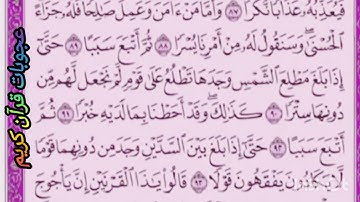 فَيُعَذِّبُهُ عَذَابًا نُّكْرًا ﴿٨٧﴾ وَأَمَّا مَنْ ءَامَنَ وَعَمِلَ صَالِحًا فَلَهُ جَزَآءً
ٱلْحُسْنَىٰ وَسَنَقُولُ لَهُ مِنْ أَمْرِنَا يُسْرًا ﴿٨٨﴾ ثُمَّ أَتْبَعَ سَبَبًا ﴿٨٩﴾ حَتَّىٰ
إِذَا بَلَغَ مَطْلِعَ ٱلشَّمْسِ وَجَدَهَا تَطْلُعُ عَلَىٰ قَوْمٍ لَّمْ نَجْعَل لَّهُم مِّن
دُونِهَا سِتْرًا ﴿٩٠﴾ كَذَٰلِكَ وَقَدْ أَحَطْنَا بِمَا لَدَيْهِ خُبْرًا ﴿٩١﴾ ثُمَّ
أَتْبَعَ سَبَبًا ﴿٩٢﴾ حَتَّىٰ إِذَا بَلَغَ بَيْنَ ٱلسَّدَّيْنِ وَجَدَ مِن دُونِهِمَا قَوْمًا
لَّا يَكَادُونَ يَفْقَهُونَ قَوْلًا ﴿٩٣﴾ قَالُوا۟ يَٰذَا ٱلْقَرْنَيْنِ إِنَّ يَأْجُوجَ
عجوبات قرآن کریم